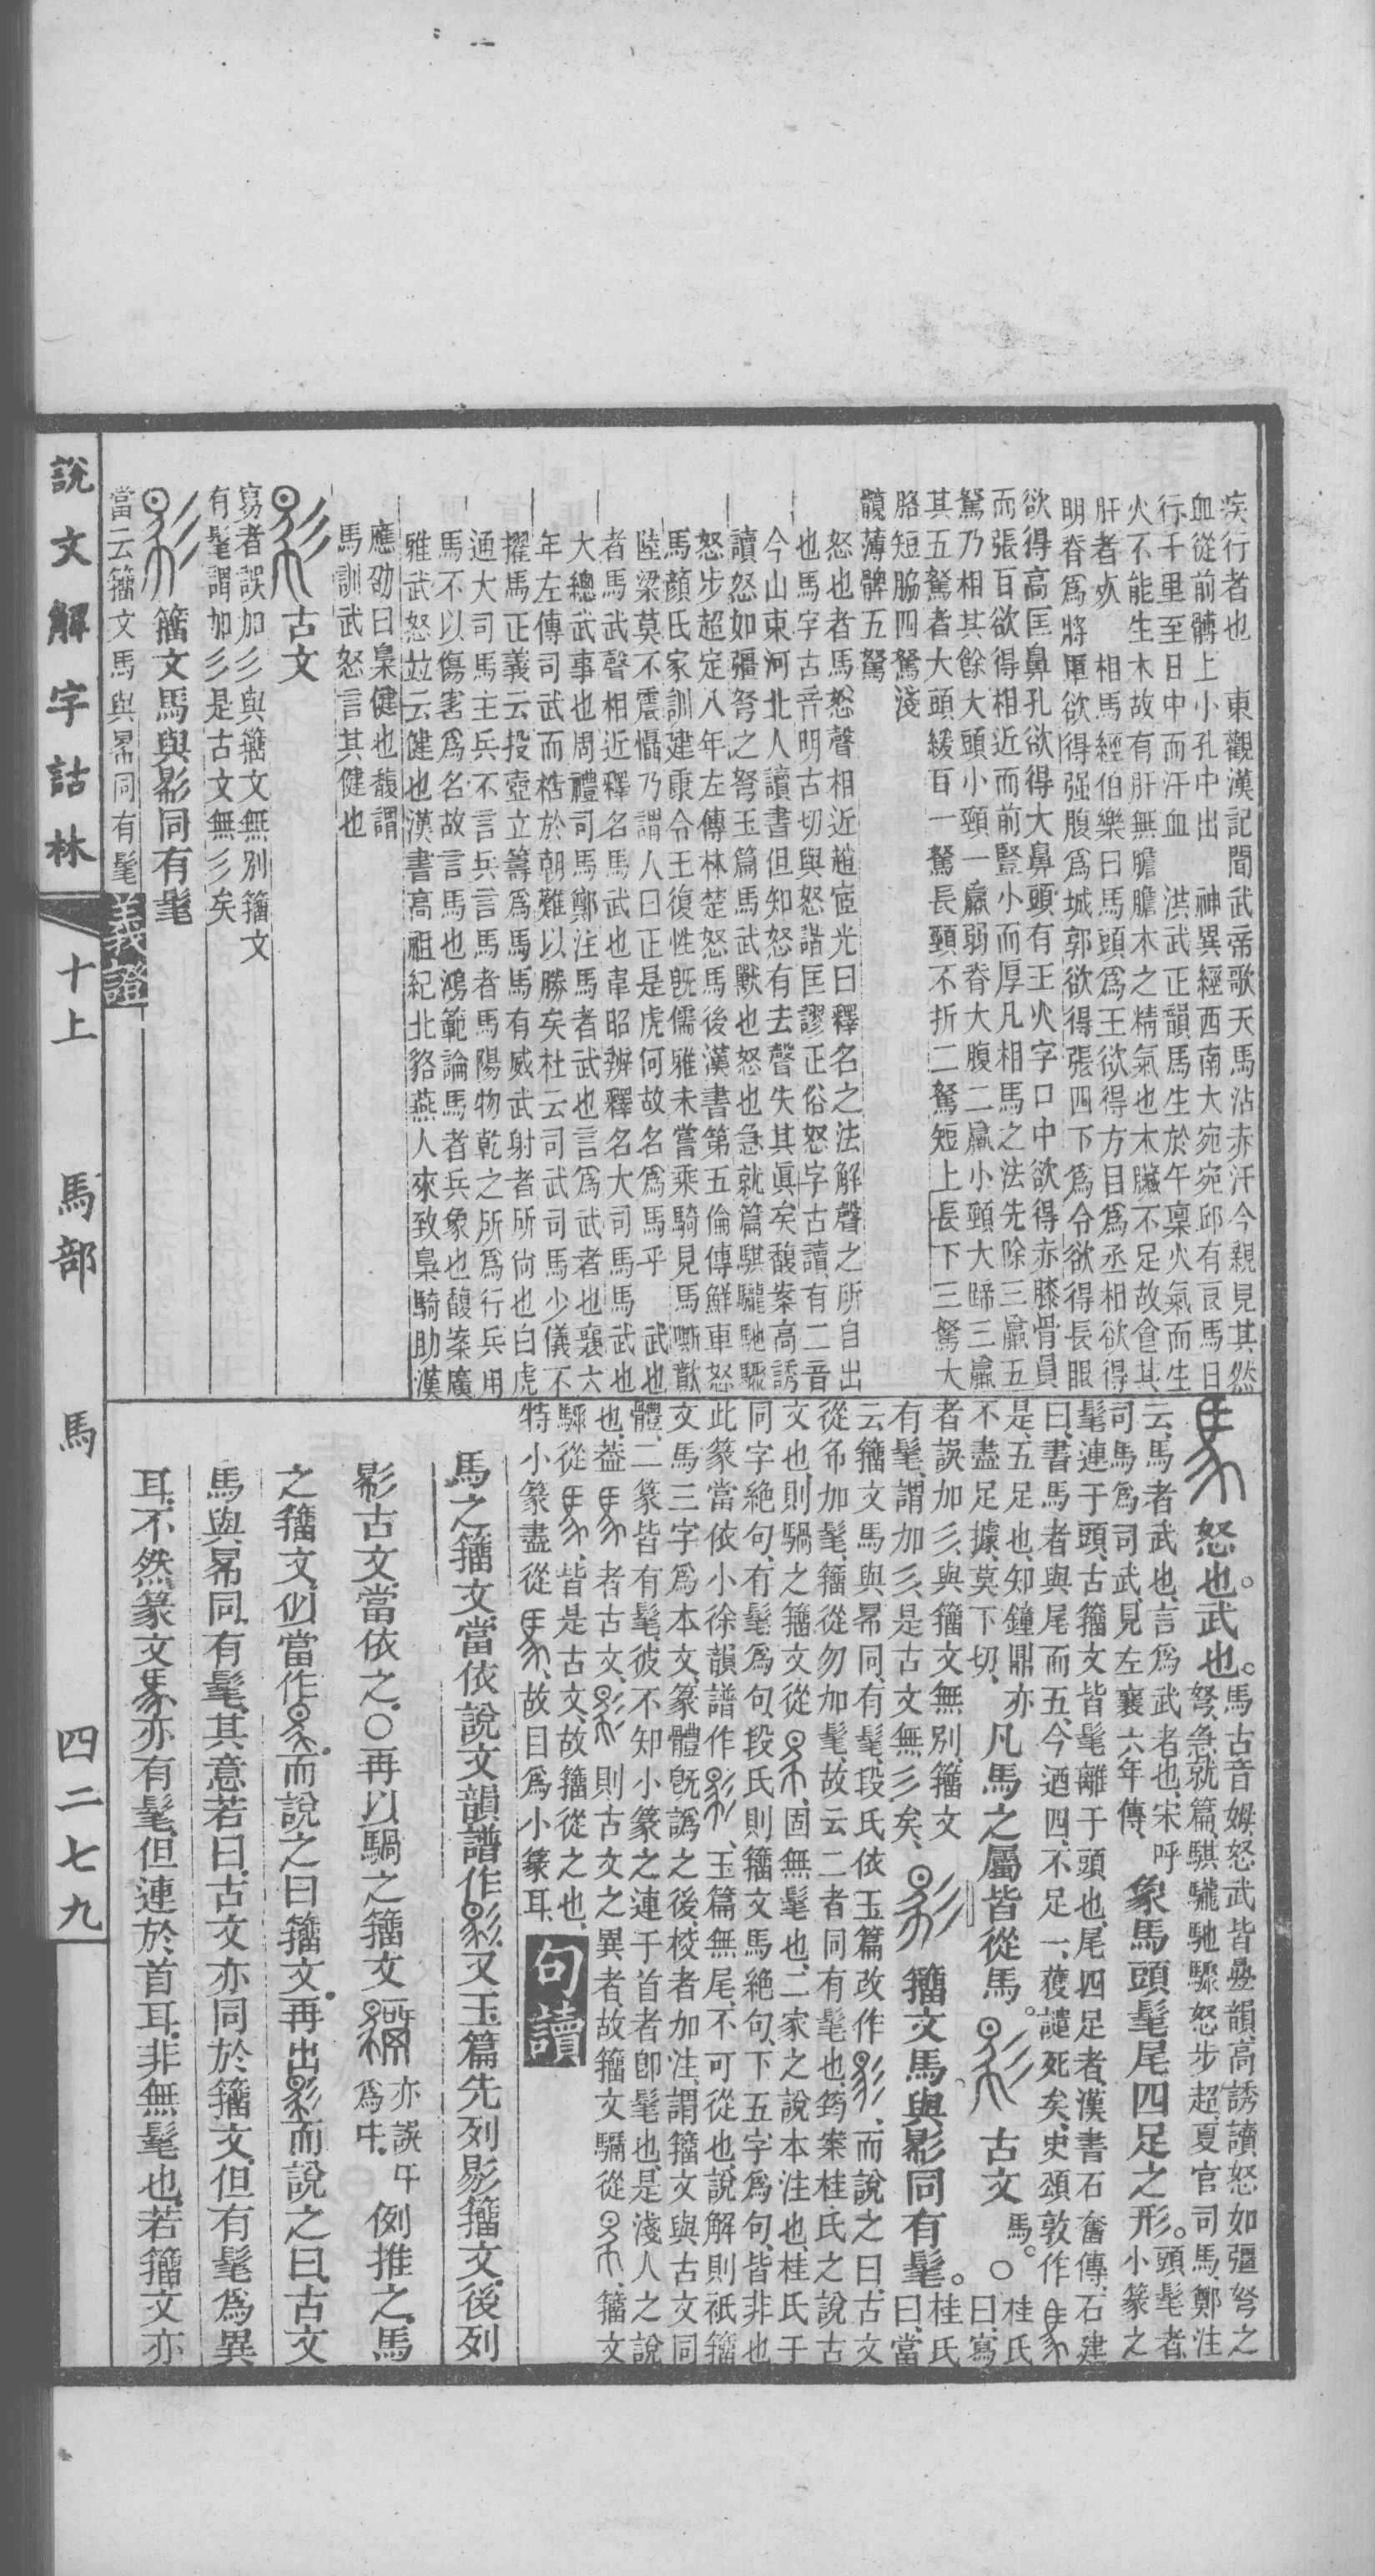 疾行者也　東觀漢記閻武帝歌天馬沾赤汗今親見其然
血從前髆上小孔中出　神異經西南大宛宛邱有良馬日
行千里至日中而汗血　洪武正韻馬生於午稟火氣而生
火不能生木故有肝無膽膽木之精氣也木臟不足故食其
肝者死　相馬經伯樂曰馬頭爲王欲得方目爲丞相欲得
明脊爲將軍欲得强腹爲城郭欲得張四下爲令欲得長眼
欲得高匡鼻孔欲得大鼻頭有王火字口中欲得赤膝骨員
而張百欲得相近而前豎小而厚凡相馬之法先除三羸五
駑乃相其餘大頭小頸一羸弱脊大腹二羸小頸大蹄三羸
其五駑者大頭緩百一駑長頸不折二駑短上長下三駑大
胳短脇四駑淺
髖薄髀五駑
怒也者馬怒聲相近趙宧光曰釋名之法解聲之所自出
也馬字古音明古切與怒諧匡謬正俗怒字古讀有二音
今山東河北人讀書但知怒有去聲失其眞矣馥案高誘
讀怒如彊弩之弩玉篇馬武獸也怒也急就篇騏驡馳驟
怒步超定八年左傳林楚怒馬後漢書第五倫傳鮮車怒
馬顔氏家訓建康令王復性旣儒雅未嘗乘騎見馬嘶歕
陸梁莫不震懾乃謂人曰正是虎何故名爲馬乎　武也
者馬武聲相近釋名馬武也韋昭辨釋名大司馬馬武也
大總武事也周禮司馬鄭注馬者武也言爲武者也襄六
年左傳司武而梏於朝難以勝矣杜云司武司馬少儀不
擢馬正義云投壺立籌爲馬馬有威武射者所尙也白虎
通大司馬主兵不言兵言馬者馬陽物乾之所爲行兵用
馬不以傷害爲名故言馬也鴻範論馬者兵象也馥案廣
雅武怒竝云健也漢書高祖紀北貉燕人來致梟騎助漢
應劭曰梟健也馥謂
馬訓武怒言其健也
古文
寫者誤加彡與籒文無別籒文
有髦謂加彡是古文無彡矣
籒文馬與影同有髦
當云籒文馬與㣇同有髦
義證
怒也。武也。馬古音姆怒武皆疊韻、高誘讀怒如彊弩之
弩、急就篇、騏驡馳驟怒步超、夏官司馬、鄭注
云、馬者武也、言爲武者也、宋呼
司馬爲司武、見左襄六年傳、象馬頭髦尾四足之形。頭髦者、小篆之
髦連于頭、古籒文皆髦離于頭也、尾四足者、漢書石奮傳、石建
曰、書馬者與尾而五、今迺四、不足一、獲譴死矣、史頌敦作
是、五足也、知鐘鼎亦
不盡足據、莫下切、凡馬之屬皆從馬。古文馬。〇桂氏曰、寫
者誤加彡、與籒文無別、籒文
有髦、謂加彡、是古文無彡矣、籒文馬與影同有髦。桂氏曰、當
云籒文馬與㣇同、有髦、段氏依玉篇改作、而說之曰、古文
從㣇加髦、籒從勿加髦、故云二者同有髦也、筠案桂氏之說古
文也、則騧之籒文從、固無髦也、二家之說本注也、桂氏于
同字絶句、有髦爲句、段氏則籒文馬絶句、下五字爲句、皆非也
此篆當依小徐韻譜作、玉篇無尾、不可從也、說解則衹籒
文馬三字爲本文、篆體旣譌之後、校者加注、謂籒文與古文同
體、二篆皆有髦、彼不知小篆之連于首者卽髦也、是淺人之說
也、葢者古文、則古文之異者、故籒文騧從、籒文
驅從、皆是古文、故籒從之也、
特小篆盡從、故目爲小篆耳、
句讀
馬之籒文、當依說文韻譜作、又玉篇先列影籒文、後列
影古文、當依之。〇再以騧之籒文亦誤爲中。例推之、馬
之籒文、似當作、而說之曰籒文、再出而說之曰、古文
馬與㣇同、有髦、其意若曰、古文亦同於籒文、但有髦爲異
耳、不然、篆文亦有髦、但連於首耳、非無髦也、若籒文亦
說文解字詁林　十上　馬部　馬　四二七九